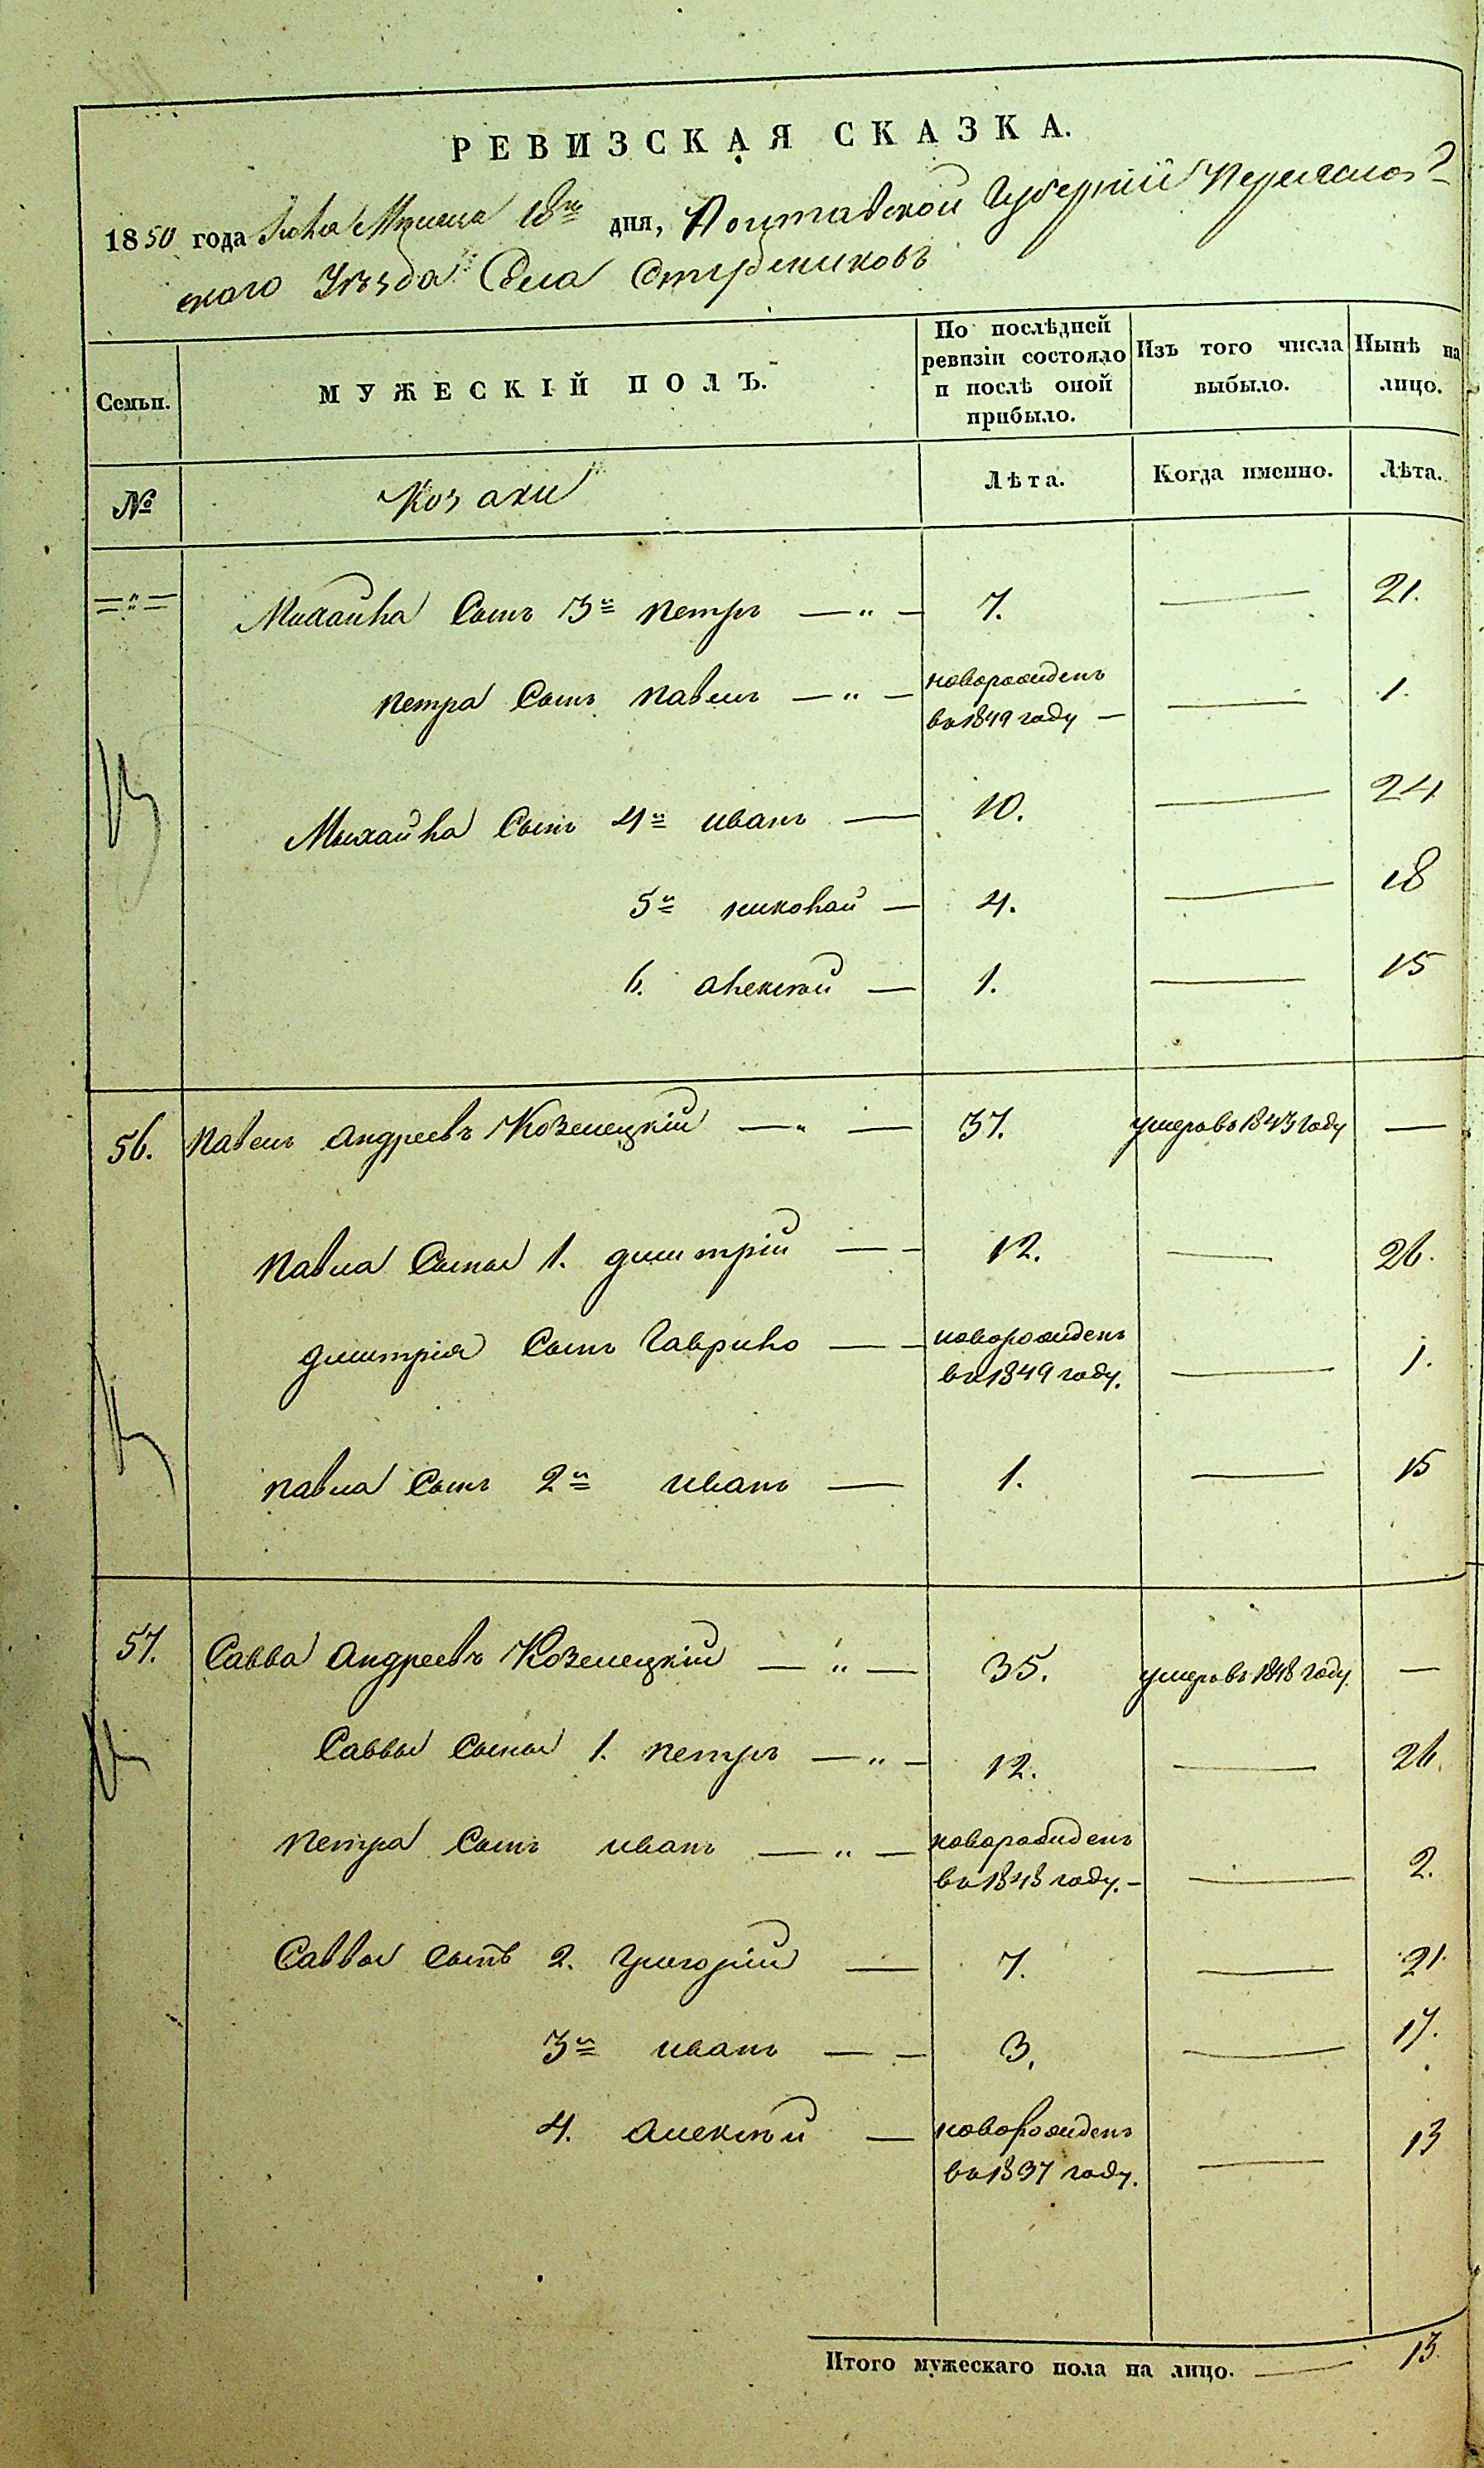 РЕВИЗСКАЯ СКАЗКА.
1850 года Іюля Мѣсяца 18го дня, Полтавской Губерніи Переяслов
скаго Уѣзда Села Студениковъ
Семьи. МУЖЕСКІЙ ПОЛЪ. По послѣдней ревизіи состояло и послѣ оной прибыло. Изъ того числа выбыло. Нынѣ на лицо.
№ Козаки Лѣта. Когда именно. Лѣта.
—"— Михайла Сынъ 3й петръ —"— 7. — 21.
петра Сынъ павелъ —"— новорожденъ въ 1849 году — — 1.
Михайла Сынъ 4й иванъ — 10. — 24
5й николай — 4. — 18
6. алексѣй — 1. — 15
56. павелъ андреевъ Козелецкій —"— 37. умеръ въ 1843 году —
павла Сыны 1. дмитрій — 12. — 26.
дмитрія Сынъ Гаврило — новорожденъ въ 1849 году. — 1.
павла Сынъ 2й иванъ — 1. — 15
57. Савва андреевъ Козелецкій —"— 35. умеръ въ 1848 году. —
Саввы Сыны 1. петръ —"— 12. — 26.
петра Сынъ иванъ —"— новорожденъ въ 1848 году. — — 2.
Саввы Сынъ 2. григорій — 7. — 21.
3й иванъ — 3. — 17.
4. алексѣй — новорожденъ въ 1837 году. — 13
Итого мужескаго пола на лицо. — 13.